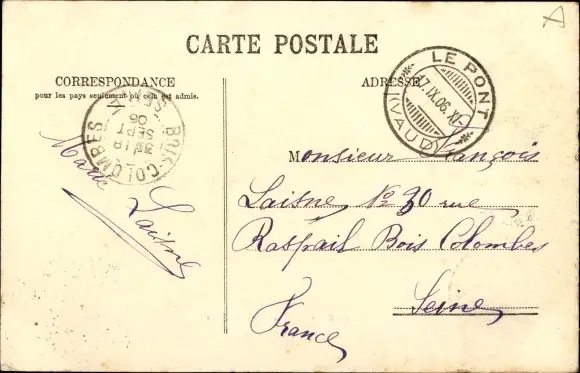 CARTE POSTALE
CORRESPONDANCE
pour les pays seulement où cela est admis.
ADRESSE
LE PONT
17.IX.06.XI-
(VAUD)
BOIS-COLOMBES
SEPT
06
SEINE
Marie
Laisne
Monsieur François
Laisne, No 30 rue
Raspail Bois Colombes
Seine
France